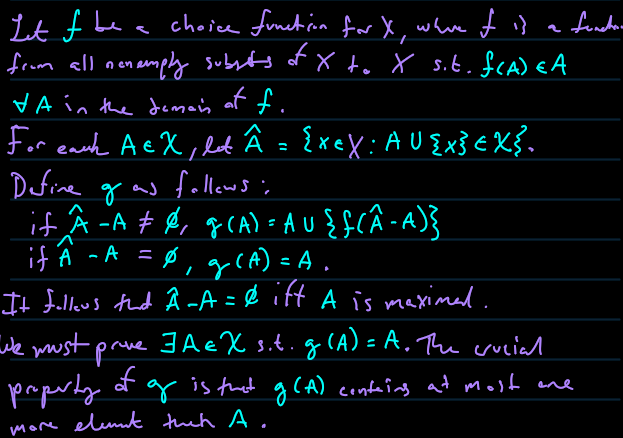 Let f be a choice function for X, where f is a
from all nonempty subsets of X to X s.t. f(A) ∈ A
∀A in the domain of f.
For each A ∈ 𝒳, let Â = {x ∈ X : A ∪ {x} ∈ 𝒳}.
Define g as follows:
if Â - A ≠ ∅, g(A) = A ∪ {f(Â - A)}
if Â - A = ∅, g(A) = A.
It follows that Â - A = ∅ iff A is maximal.
We must prove ∃A ∈ 𝒳 s.t. g(A) = A. The crucial
property of g is that g(A) contains at most one
more element than A.